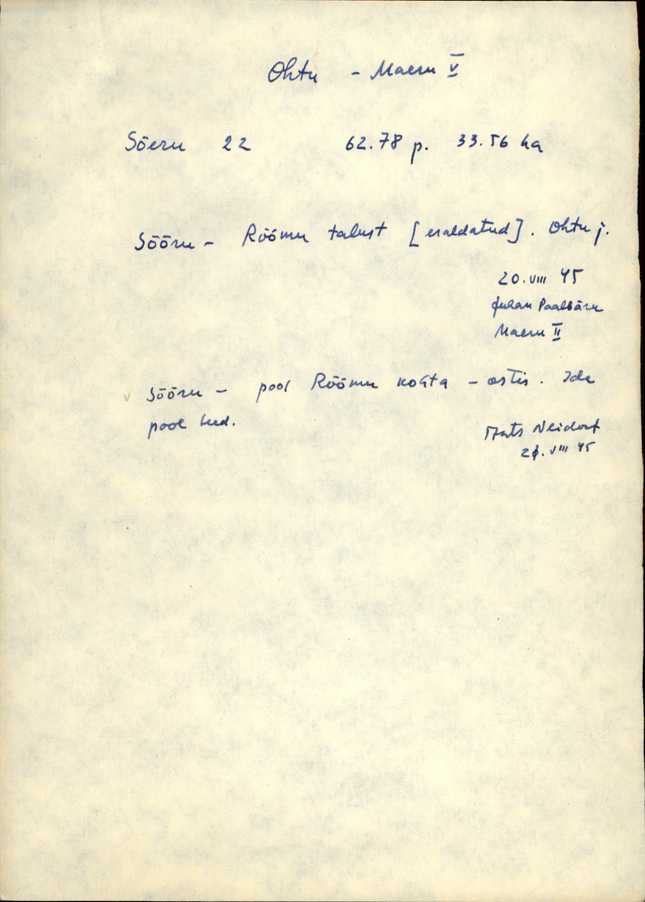 Ohtu - Maeru V
Sõeru 22 62.78 p. 33.56 ha
Sõõru - Rõõmu talust [eraldatud]. Ohtu j.
20.VIII 45
Juhan Paalbäru
Maeru II
v Sõõru - pool Rõõmu kohta - ostis. Ida
pool
Mats Neidorf
VIII 45